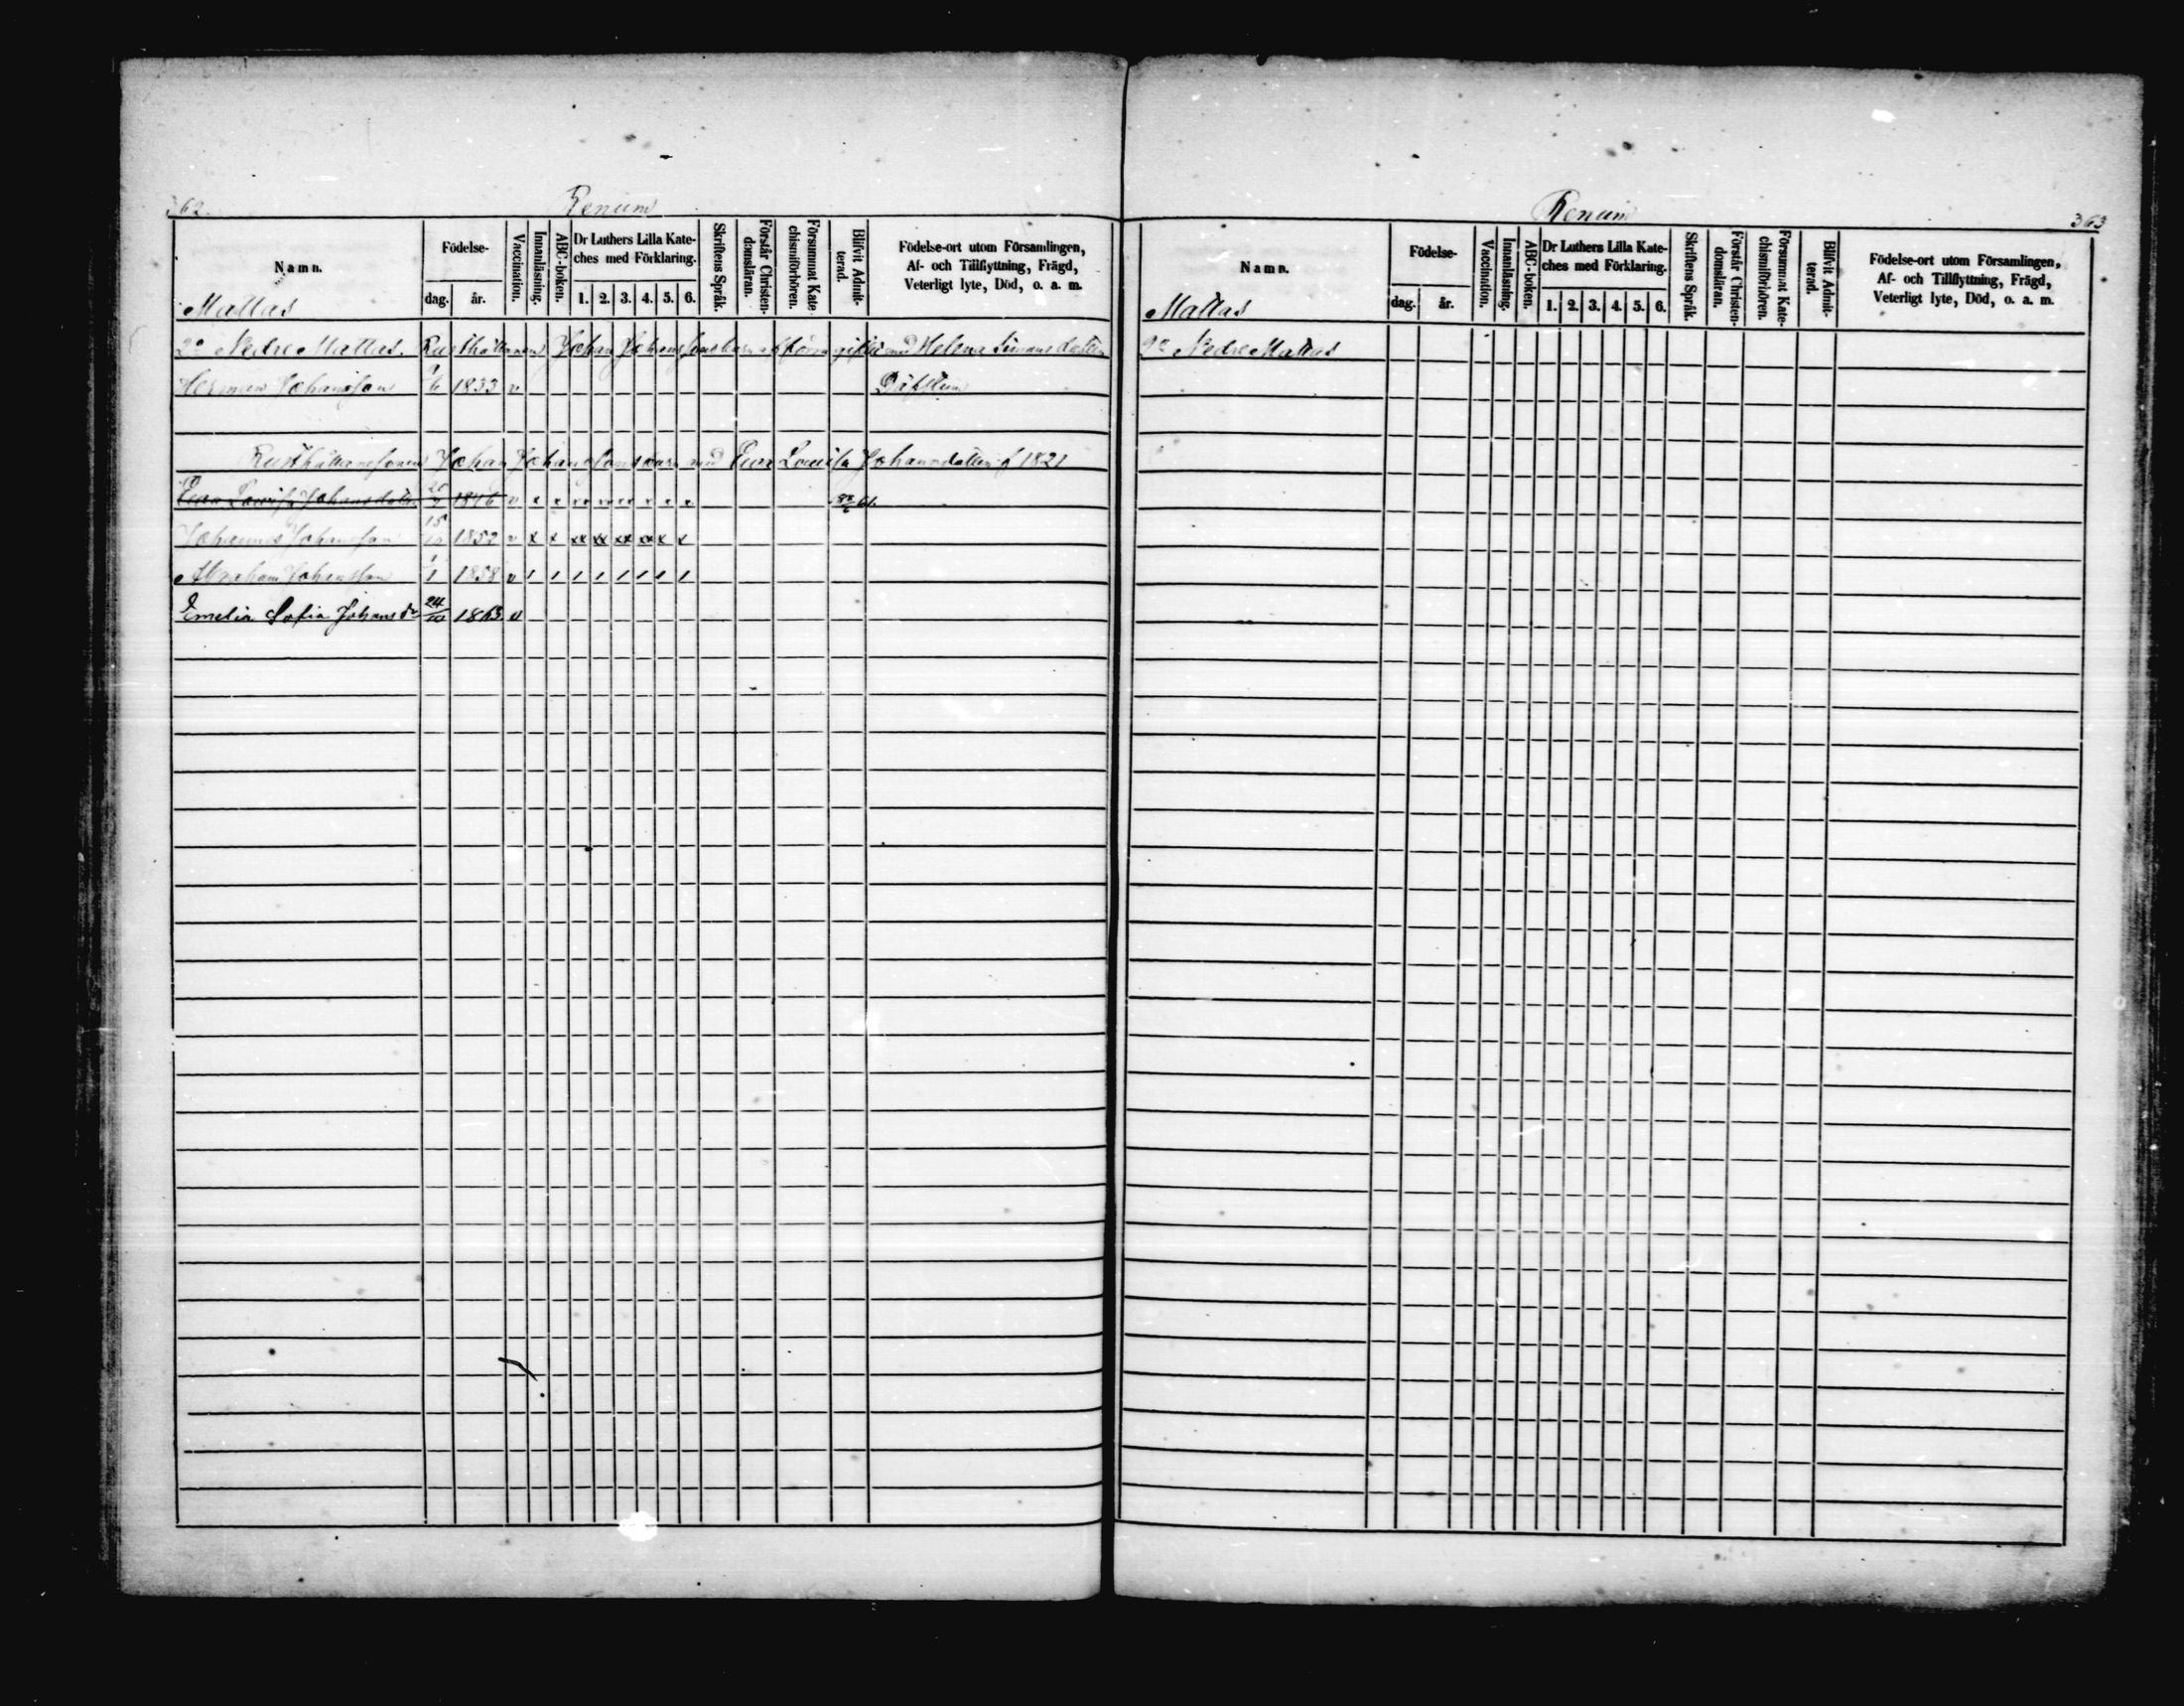 362.
Renum
Namn.
Födelse-
dag.
år.
Vaccination.
Innanläsning.
ABC-boken.
Dr Luthers Lilla Kate-
ches med Förklaring.
1. 2. 3. 4. 5. 6.
Skriftens Språk.
Förstår Christen-
domsläran.
Försummat Kate-
chismiförhören.
Blifvit Admit-
terad.
Födelse-ort utom Församlingen,
Af- och Tillflyttning, Frägd,
Veterligt lyte, Död, o. a. m.
Mattas
2o Nedre Mattas. Rusthållaren Johan Johanssons barn med Helena Simonsdotter
Herman Johansson 1833 v
Rusthållaresonen Johan Johanssons barn med Eva Lovisa Johansdotter f 1821
Eva Lovisa Johansdotter 1846 v x x xx xx xx x x x 61.
Johannes Johansson 1852 v x x xx xx xx xx x x
Abraham Johansson 1858 v 1 1 1 1 1 1 1 1
Emelia Sofia Johansdr 24/10 1863 v
Renum
363
Namn.
Födelse-
dag.
år.
Vaccination.
Innanläsning.
ABC-boken.
Dr Luthers Lilla Kate-
ches med Förklaring.
1. 2. 3. 4. 5. 6.
Skriftens Språk.
Förstår Christen-
domsläran.
Försummat Kate-
chismiförhören.
Blifvit Admit-
terad.
Födelse-ort utom Församlingen,
Af- och Tillflyttning, Frägd,
Veterligt lyte, Död, o. a. m.
Mattas
2o Nedre Mattas